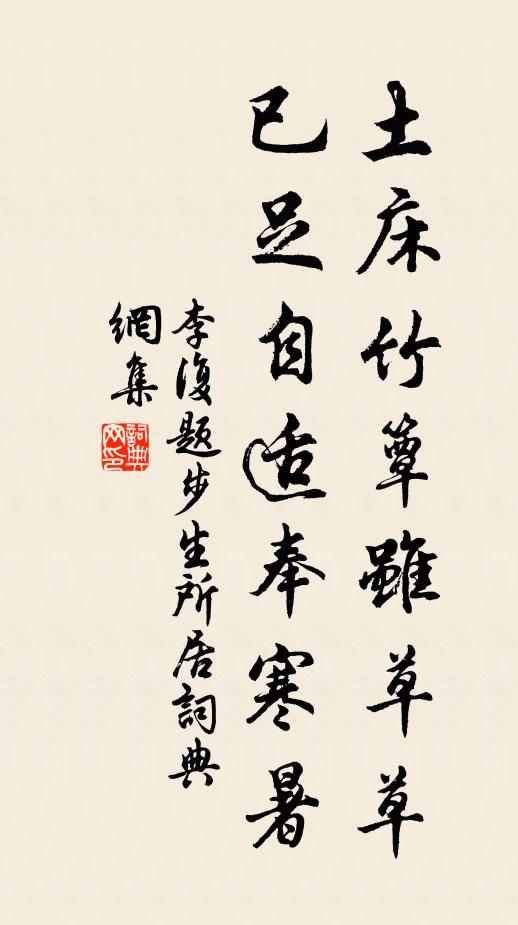 土床竹簟雖草草
已足自适奉寒暑
李復題步生所居詞典
網集
詞典
网印